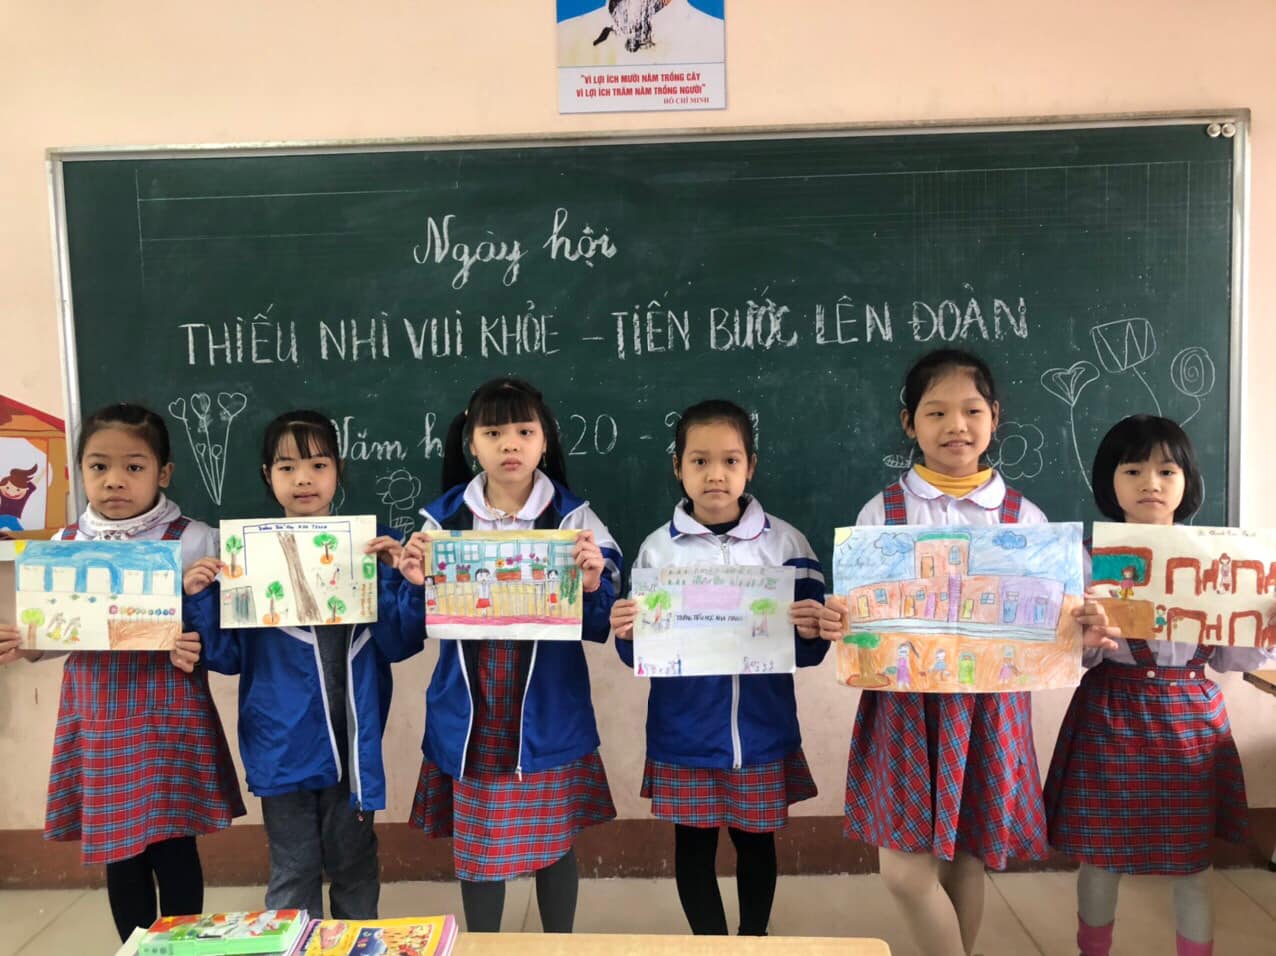 "VÌ LỢI ÍCH MƯỜI NĂM TRỒNG CÂY
VÌ LỢI ÍCH TRĂM NĂM TRỒNG NGƯỜI"
HỒ CHÍ MINH
Ngày hội
THIẾU NHI VUI KHỎE - TIẾN BƯỚC LÊN ĐOÀN
Năm h 20 - 2
TRƯỜNG TIỂU HỌC NHA TRANG